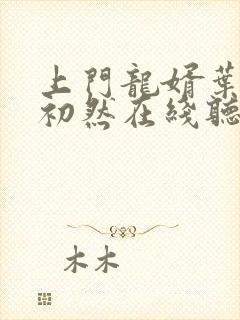 上門龍婿葉
初然在綫聽
木木